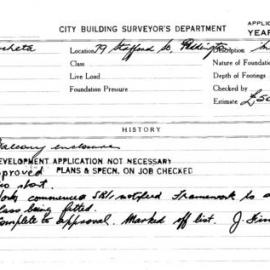 CITY BUILDING SURVEYOR'S DEPARTMENT
APPLIC
YEAR
Location 79 Stafford St. Paddington Description
Class
Nature of Foundation
Live Load
Depth of Footings
Foundation Pressure
Checked by
Estimate £50
HISTORY
Balcony enclosure
DEVELOPMENT APPLICATION NOT NECESSARY
approved PLANS & SPECN. ON JOB CHECKED
commenced notified Framework to
Glass being fitted.
Complete to approval. Marked off list. J.